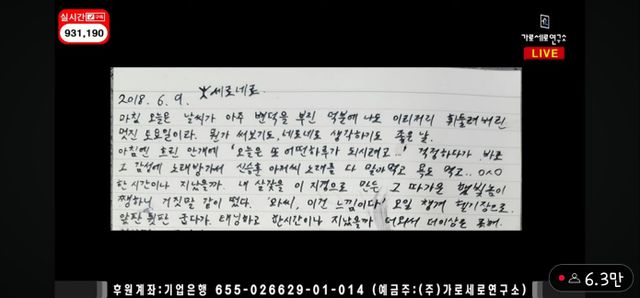 실시간 구독
931,190
가로세로연구소
LIVE
2018. 6. 9. 
세로네로.
마침 오늘은 날씨가 아주 변덕을 부린 덕분에 나도 이리저리 휘둘려버린
멋진 토요일이다. 뭔가 써보기도, 네로네로 생각하기도 좋은 날.
아침엔 흐린 안개에 '오늘은 또 어떤하루가 되시려고..' 걱정하다가 바로
그 감성에 노래방가서 신승훈 아저씨 노래를 다 말아먹고 목도 먹고.. 0x0
한시간이나 지났을까. 내 살갗을 이 지경으로 만든 그 따가운 햇빛놈이
쨍하니 거짓말 같이 떴다. '와씨, 이건 느낌이다' 요일 챙겨 헬기장으로.
앞판 뒷판 굽다가. 태닝하고 한시간이나 지났을까 더와서 더이상은 못해.
후원계좌:기업은행 655-026629-01-014 (예금주:(주)가로세로연구소)
6.3만